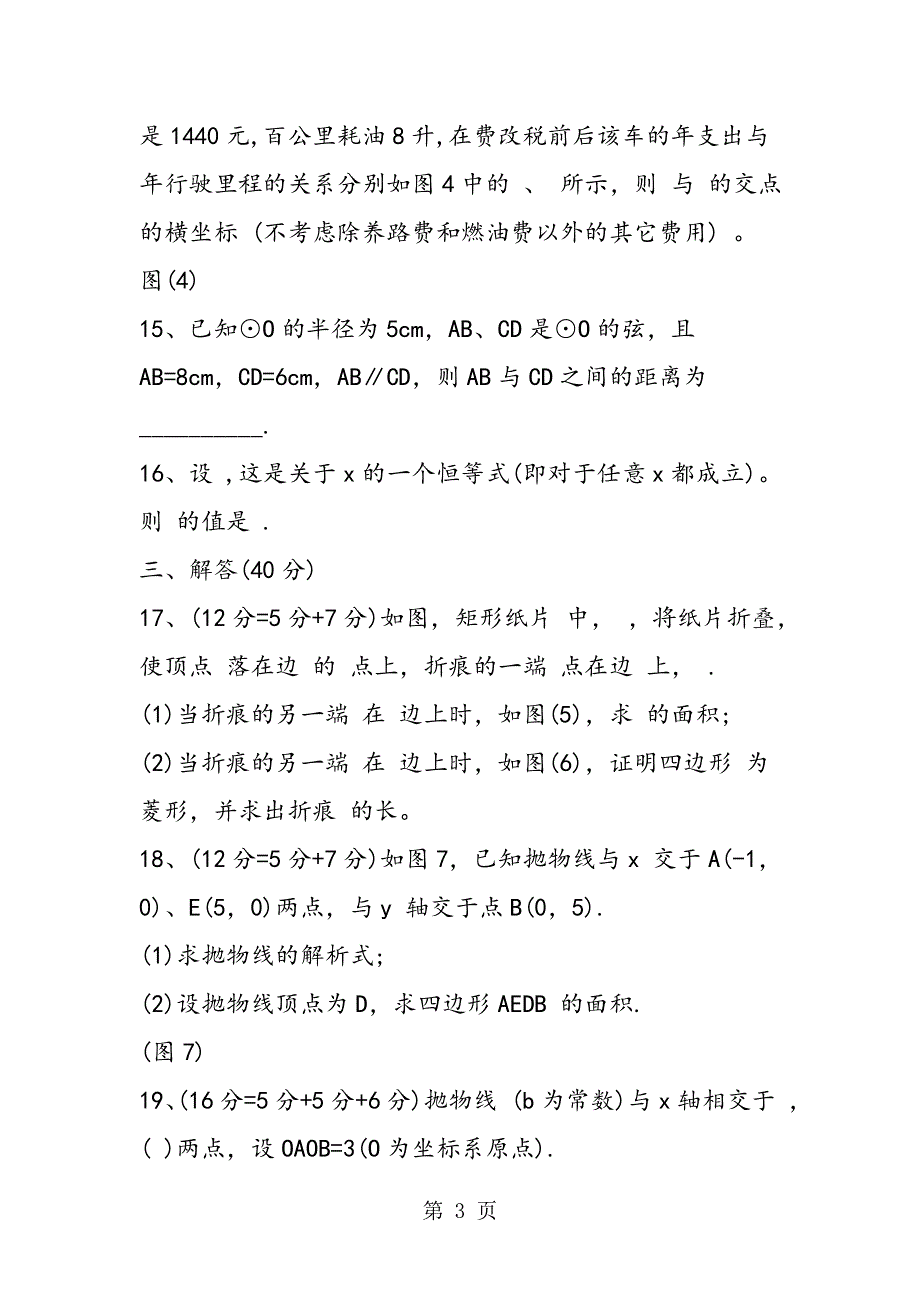 是1440元,百公里耗油8升,在费改税前后该车的年支出与
年行驶里程的关系分别如图4中的 、 所示，则 与 的交点
的横坐标 (不考虑除养路费和燃油费以外的其它费用) 。
图(4)
15、已知⊙O的半径为5cm，AB、CD是⊙O的弦，且
AB=8cm，CD=6cm，AB∥CD，则AB与CD之间的距离为
__________.
16、设 ,这是关于x的一个恒等式(即对于任意x都成立)。
则 的值是 .
三、解答(40分)
17、(12分=5分+7分)如图，矩形纸片 中， ，将纸片折叠，
使顶点 落在边 的 点上，折痕的一端 点在边 上， .
(1)当折痕的另一端 在 边上时，如图(5)，求 的面积;
(2)当折痕的另一端 在 边上时，如图(6)，证明四边形 为
菱形，并求出折痕 的长。
18、(12分=5分+7分)如图7，已知抛物线与x 交于A(-1，
0)、E(5，0)两点，与y 轴交于点B(0，5).
(1)求抛物线的解析式;
(2)设抛物线顶点为D，求四边形AEDB 的面积.
(图7)
19、(16分=5分+5分+6分)抛物线 (b为常数)与x轴相交于 ，
( )两点，设OAOB=3(O为坐标系原点).
第 3 页